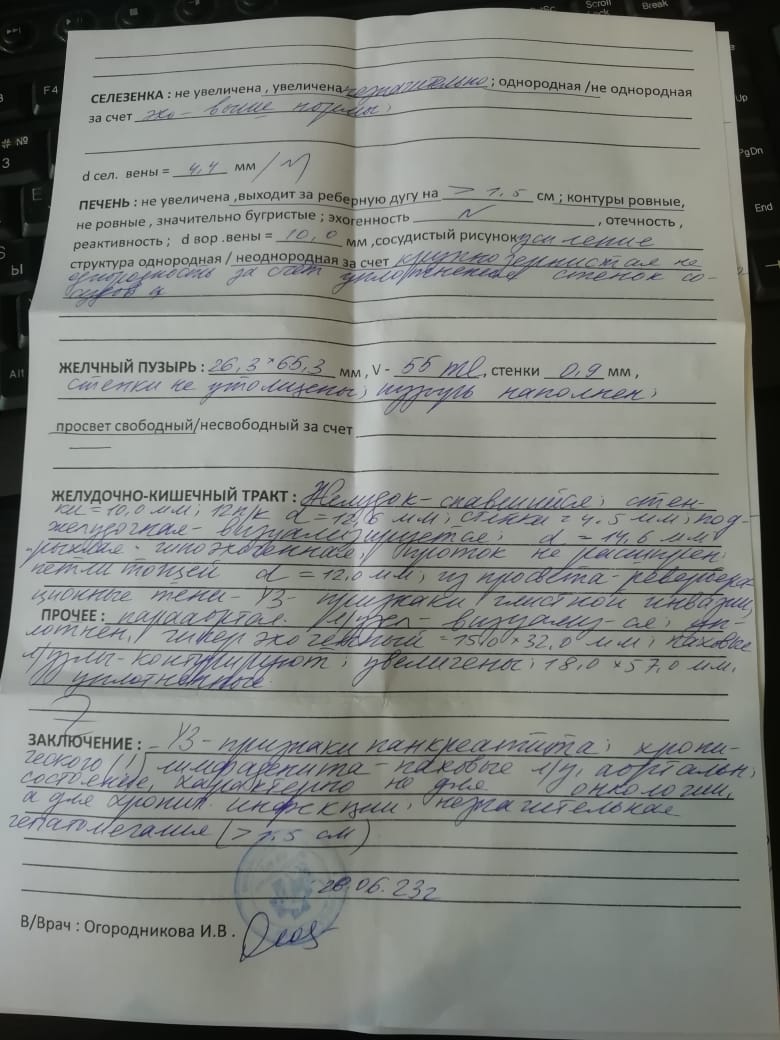 СЕЛЕЗЕНКА : не увеличена , увеличена незначительно ; однородная /не однородная
за счет эхо- выше нормы,
d сел. вены = 4,4 мм / N
ПЕЧЕНЬ : не увеличена ,выходит за реберную дугу на > 1,5 см ; контуры ровные,
не ровные , значительно бугристые ; эхогенность N , отечность ,
реактивность ; d вор .вены = 10,0 мм ,сосудистый рисунок усиление
структура однородная / неоднородная за счет крупнозернистая не
однородность за счет уплотнения стенок со-
судов
ЖЕЛЧНЫЙ ПУЗЫРЬ : 26,3 × 65,3 мм , V - 55 ml, стенки 0,9 мм ,
стенки не утолщены, пузырь наполнен,
просвет свободный/несвободный за счет
ЖЕЛУДОЧНО-КИШЕЧНЫЙ ТРАКТ : Желудок- спавшийся, стен-
ки = 10,0 мм; 12п/к d = 12,6 мм; стенки = 4,5 мм; под-
желудочная- визуализируется; d = 14,6 мм
рыхлая - гипоэхогенная, проток не расширен,
петли тощей d = 12,0 мм, из просвета- ревербера-
ционные тени- УЗ- признаки глистной инвазии,
ПРОЧЕЕ : парааортал. л/узел- визуализ-ся; уп-
лотнен, гиперэхогенный = 15,0 × 32,0 мм; паховые
л/узлы- контурируют; увеличены; 18,0 × 57,0 мм,
уплотненные.
ЗАКЛЮЧЕНИЕ : УЗ- признаки панкреатита; хрони-
ческого лимфаденита- паховые л/у, аортальн;
состояние, характерно не для онкологии,
а для хронич. инфекции, незначительная
гепатомегалия (> 1.5 см)
28.06.23г
В/Врач : Огородникова И.В .